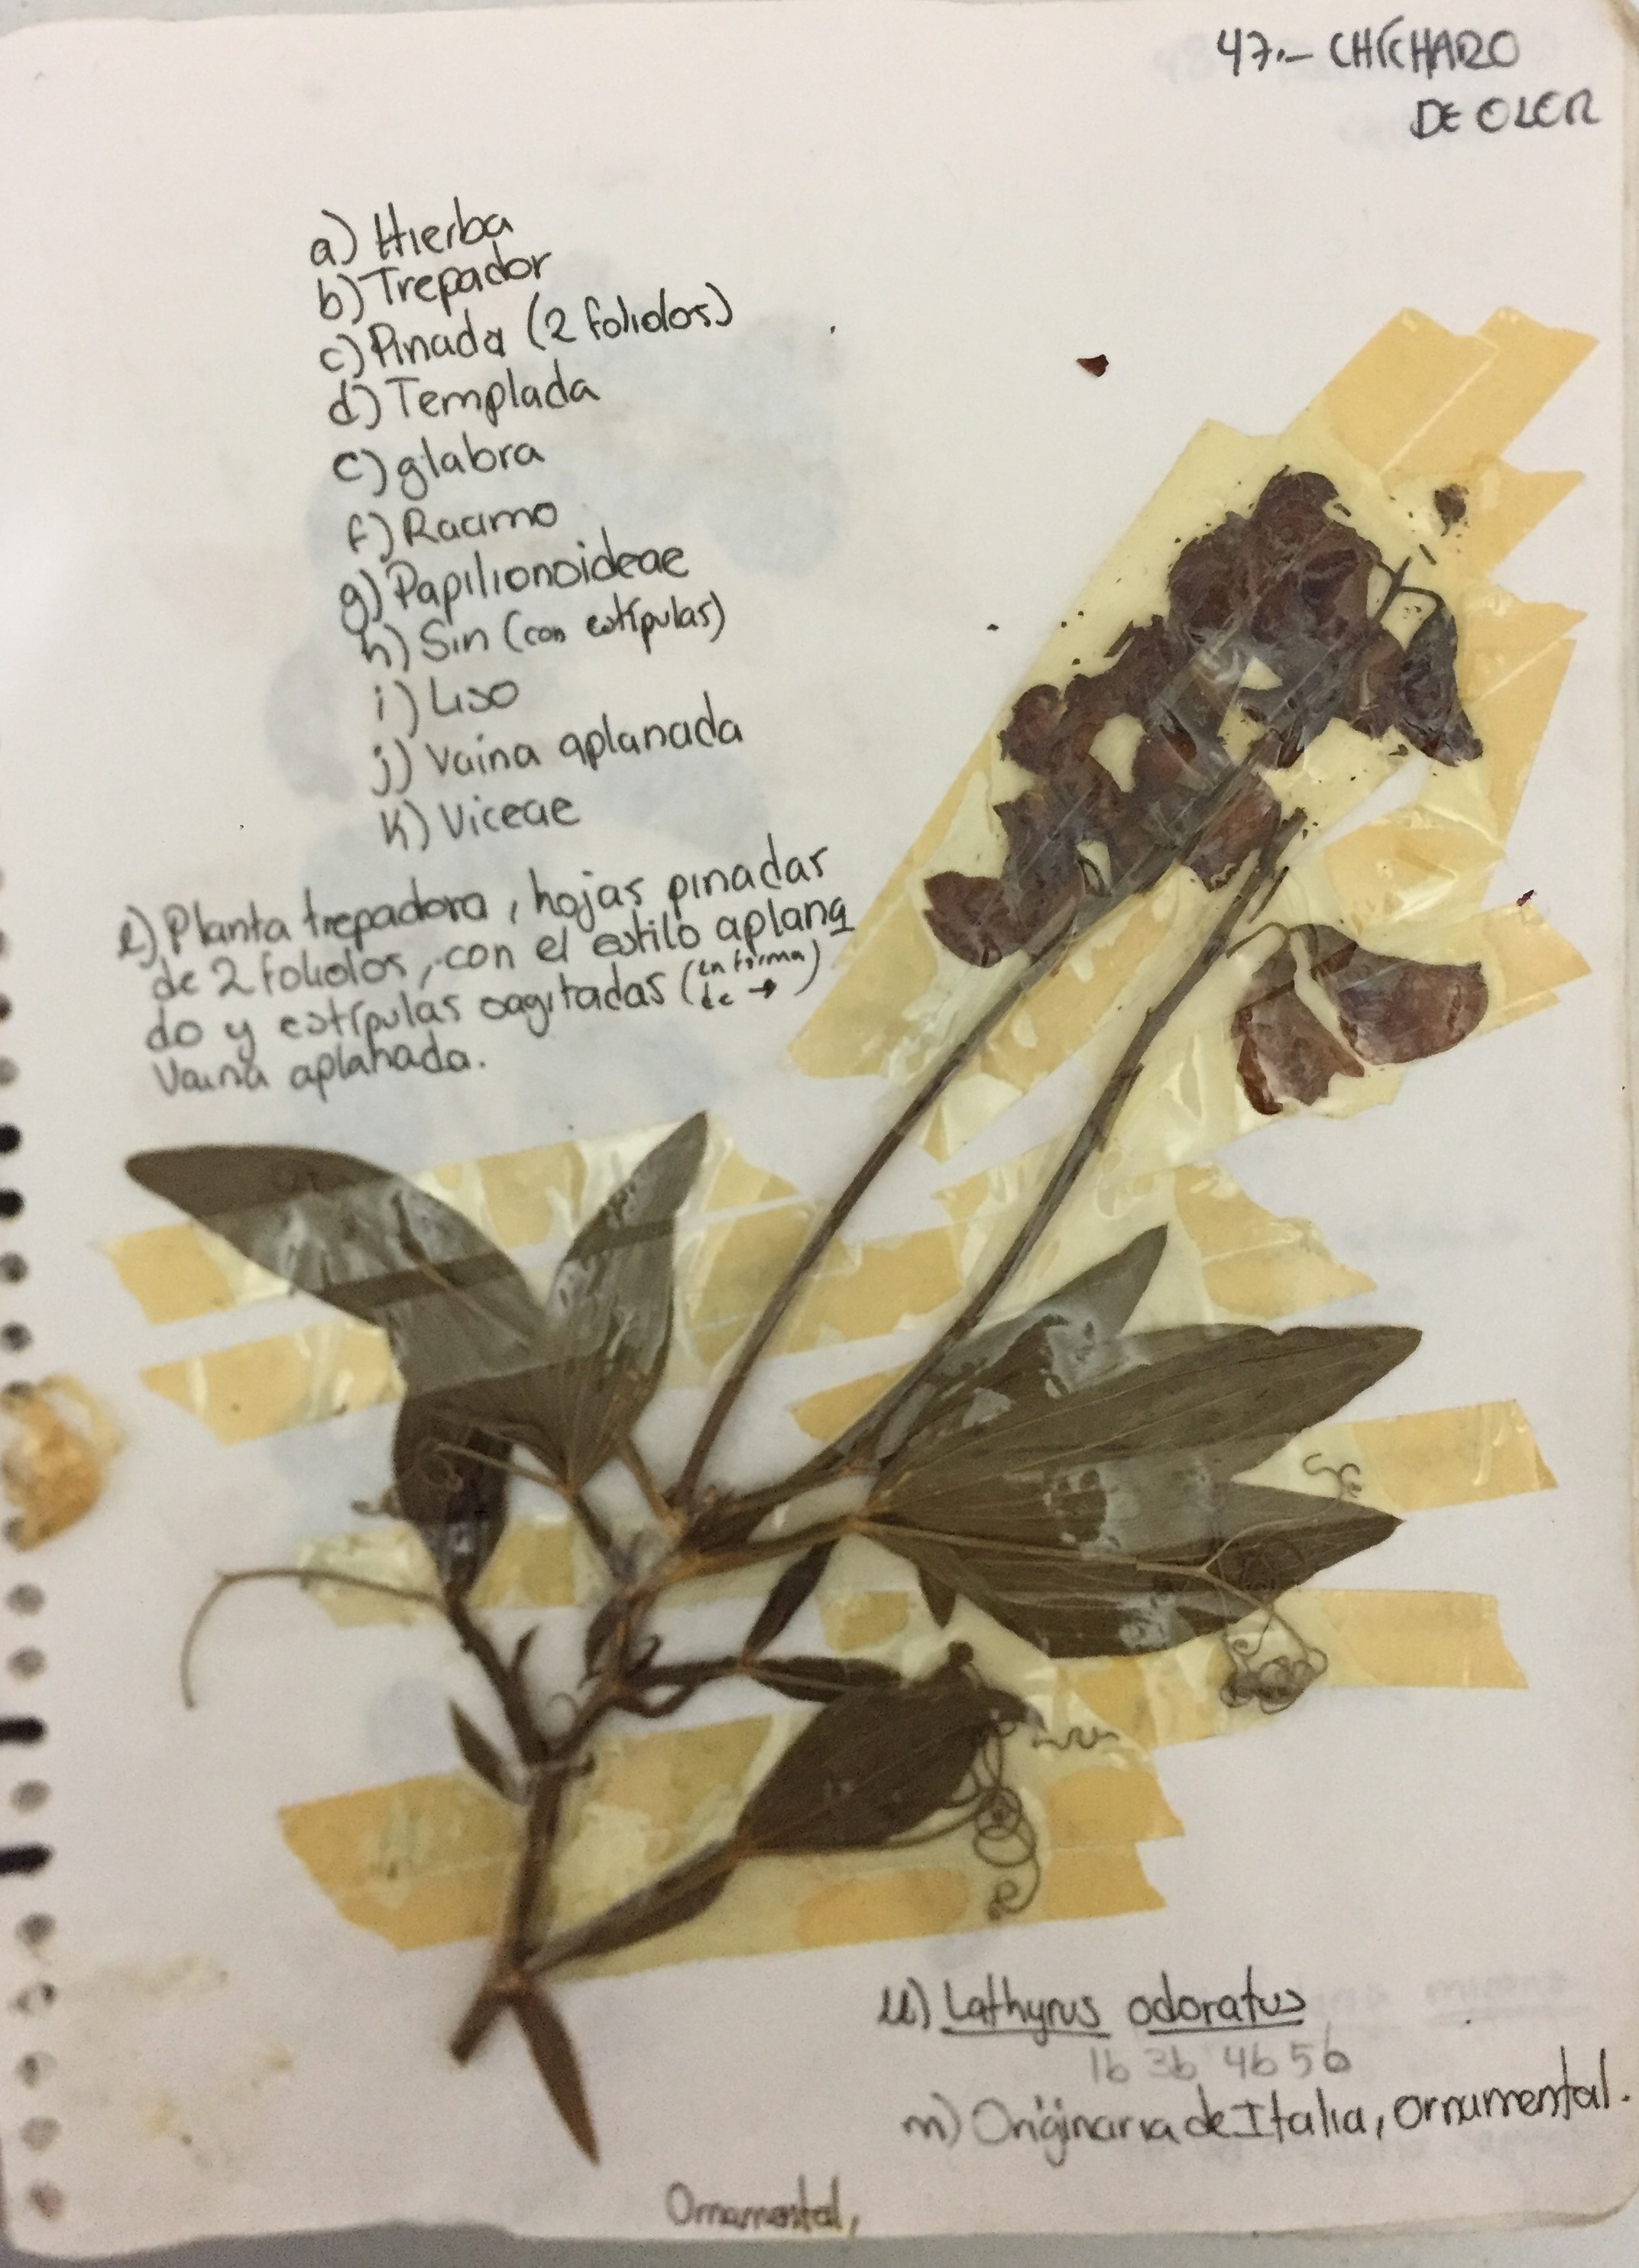 47.- CHÍCHARO
DE OLOR
a) Hierba
b) Trepador
c) Pinada (2 foliolos)
d) Templada
e) glabra
f) Racimo
g) Papilionoideae
h) Sin (con estípulas)
i) Liso
j) Vaina aplanada
k) Viceae
l) Planta trepadora, hojas pinadas
de 2 foliolos, con el estilo aplana
do y estípulas sagitadas (en forma
de →)
Vaina aplanada.
ll) Lathyrus odoratus
1b 3b 4b 5b
m) Originaria de Italia, ornamental.
Ornamental,